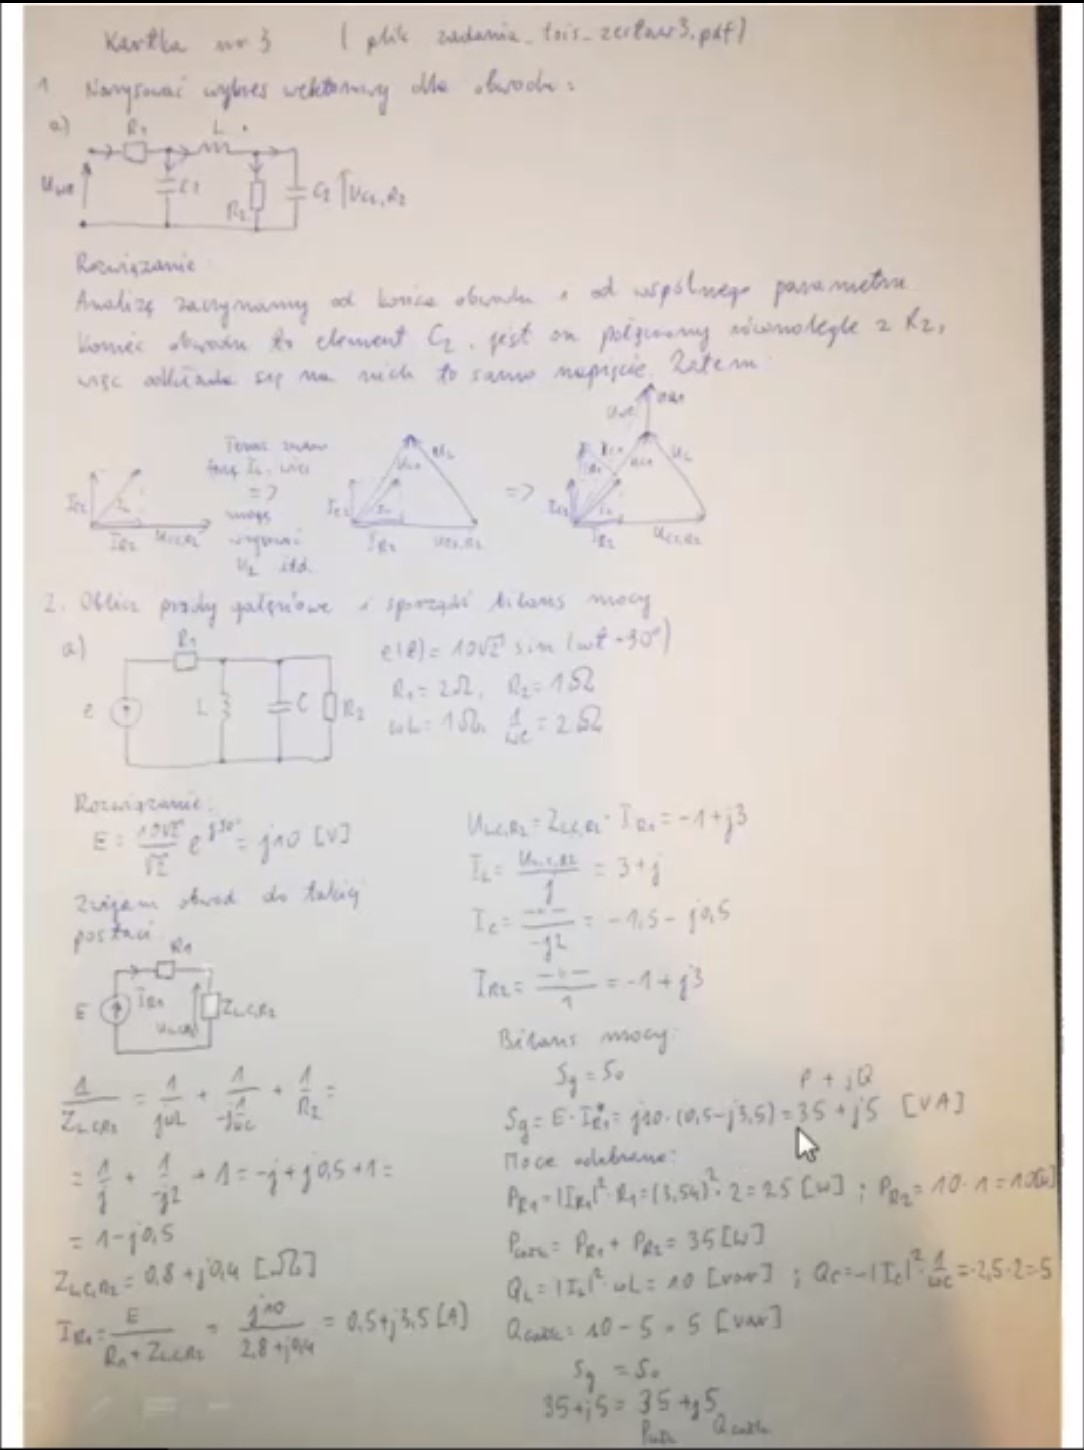 Kartka nr 3 ( plik zadania_tois_zestaw3.pdf)
1 Narysować wykres wektorowy dla obwodu:
a)
R1 L
Uwe C1 R2 C2 UC2,R2
Rozwiązanie
Analizę zaczynamy od końca obwodu i od wspólnego parametru
Koniec obwodu to element C2, jest on połączony równolegle z R2,
więc odkłada się na nich to samo napięcie. Zatem:
Teraz znam
fazę IL, więc
=>
mogę
wyznać
UL itd.
IC2 IL IR2 UC2,R2
IC2 IL IR2 UC2,R2 UC1 UL
=>
Uwe UR1 IC1 IR1 UC1 UL IC2 IL IR2 UC2,R2
2. Oblicz prądy gałęziowe i sporządź bilans mocy
a)
R1 e L C R2
e(t) = 10√2 sin (ωt + 90°)
R1 = 2Ω, R2 = 1Ω
ωL = 1Ω, 1/ωC = 2Ω
Rozwiązanie:
E = 10√2/√2 e^j90° = j10 [V]
Zwijam obwód do takiej
postaci
R1
E IR1 ULCR2 ZL,C,R2
1/ZL,C,R2 = 1/jωL + 1/-j1/ωC + 1/R2 =
= 1/j + 1/-j2 + 1 = -j + j0,5 + 1 =
= 1 - j0,5
ZL,C,R2 = 0,8 + j0,4 [Ω]
IR1 = E/R1 + ZL,C,R2 = j10/2,8 + j0,4 = 0,5 + j3,5 [A]
UL,C,R2 = ZL,C,R2 · IR1 = -1 + j3
IL = UL,C,R2/j = 3 + j
IC = -"-/-j2 = -1,5 - j0,5
IR2 = -"-/1 = -1 + j3
Bilans mocy:
Sg = So
P + jQ
Sg = E · IR1* = j10 · (0,5 - j3,5) = 35 + j5 [VA]
Moce odebrane:
PR1 = |IR1|² · R1 = (3,54)² · 2 = 25 [W] ; PR2 = 10 · 1 = 10[W]
Pcałk = PR1 + PR2 = 35 [W]
QL = |IL|² · ωL = 10 [var] ; QC = -|IC|² · 1/ωC = -2,5 · 2 = -5
Qcałk = 10 - 5 = 5 [var]
Sg = So
35 + j5 = 35 + j5
Pcałk Qcałk